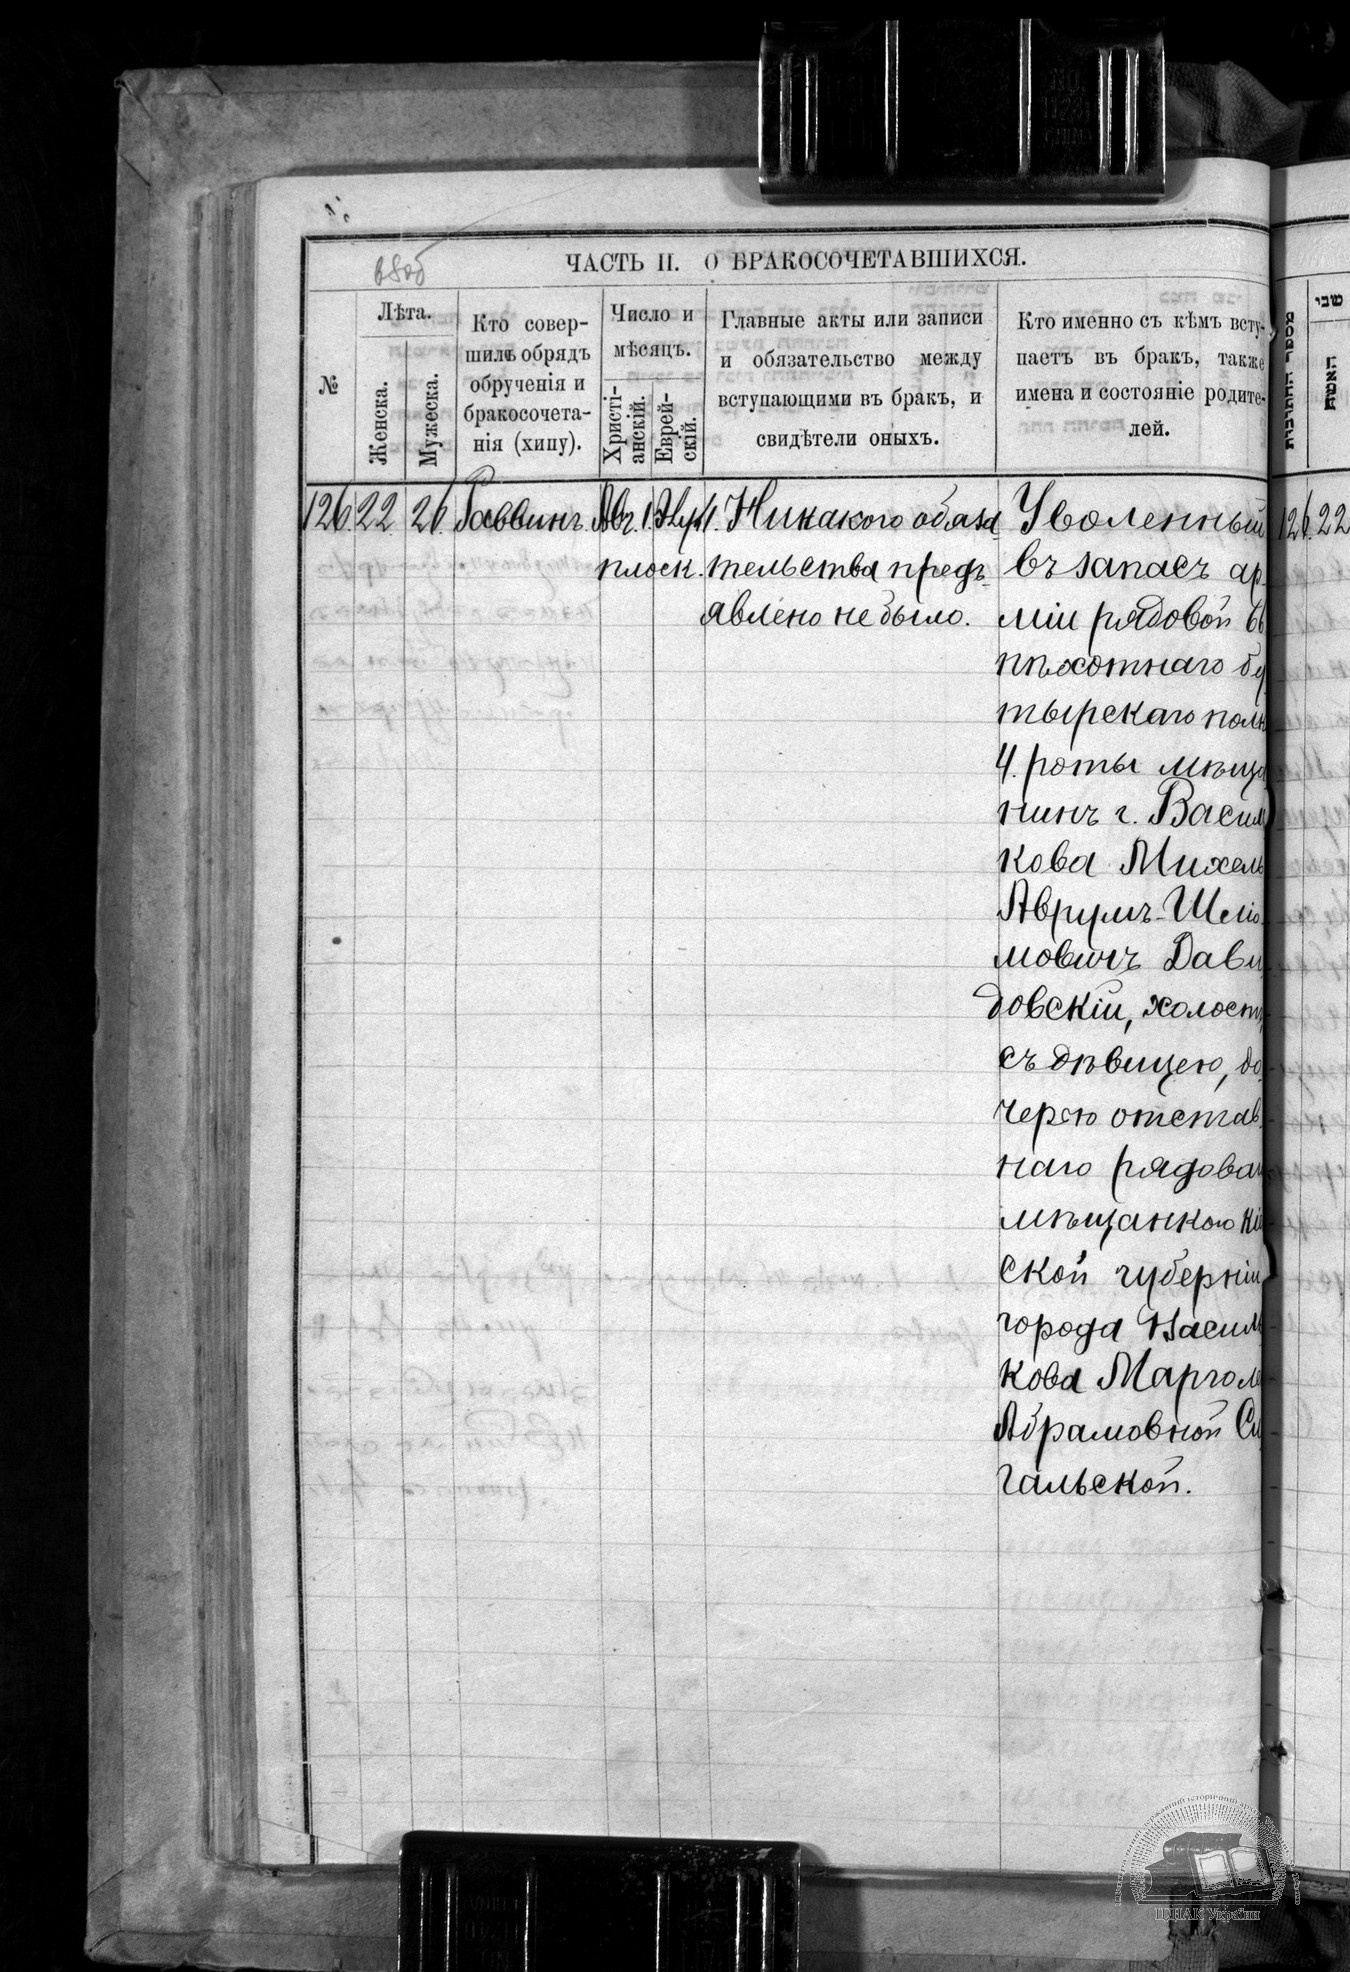 ЧАСТЬ II. О БРАКОСОЧЕТАВШИХСЯ.
№
Лѣта.
Женска.
Мужеска.
Кто совер-
шилъ обрядъ
обрученія и
бракосочета-
нія (хипу).
Число и
мѣсяцъ.
Христі-
анскій.
Еврей-
скій.
Главные акты или записи
и обязательство между
вступающими въ бракъ, и
свидѣтели оныхъ.
Кто именно съ кѣмъ всту-
паетъ въ бракъ, также
имена и состояніе родите-
лей.
126 22 26 Раввинъ Авг.
Никакого обяза
тельства предъ-
явлено не было.
Уволенный
въ запасъ ар-
міи рядовой
пѣхотнаго бу
тырскаго полк
4. роты мѣща
нинъ г. Васил
кова Михель
Аврумъ-Шліо
мовичъ Дави
довскій, холост
съ дѣвицею, до
черью отстав
наго рядоваг
мѣщанкою Кіе
ской губерніи
города Василь
кова Марголе
Абрамовной Си
гальской.
מספר החתונות
שני
האשה
126. 22
ЦДІАК України